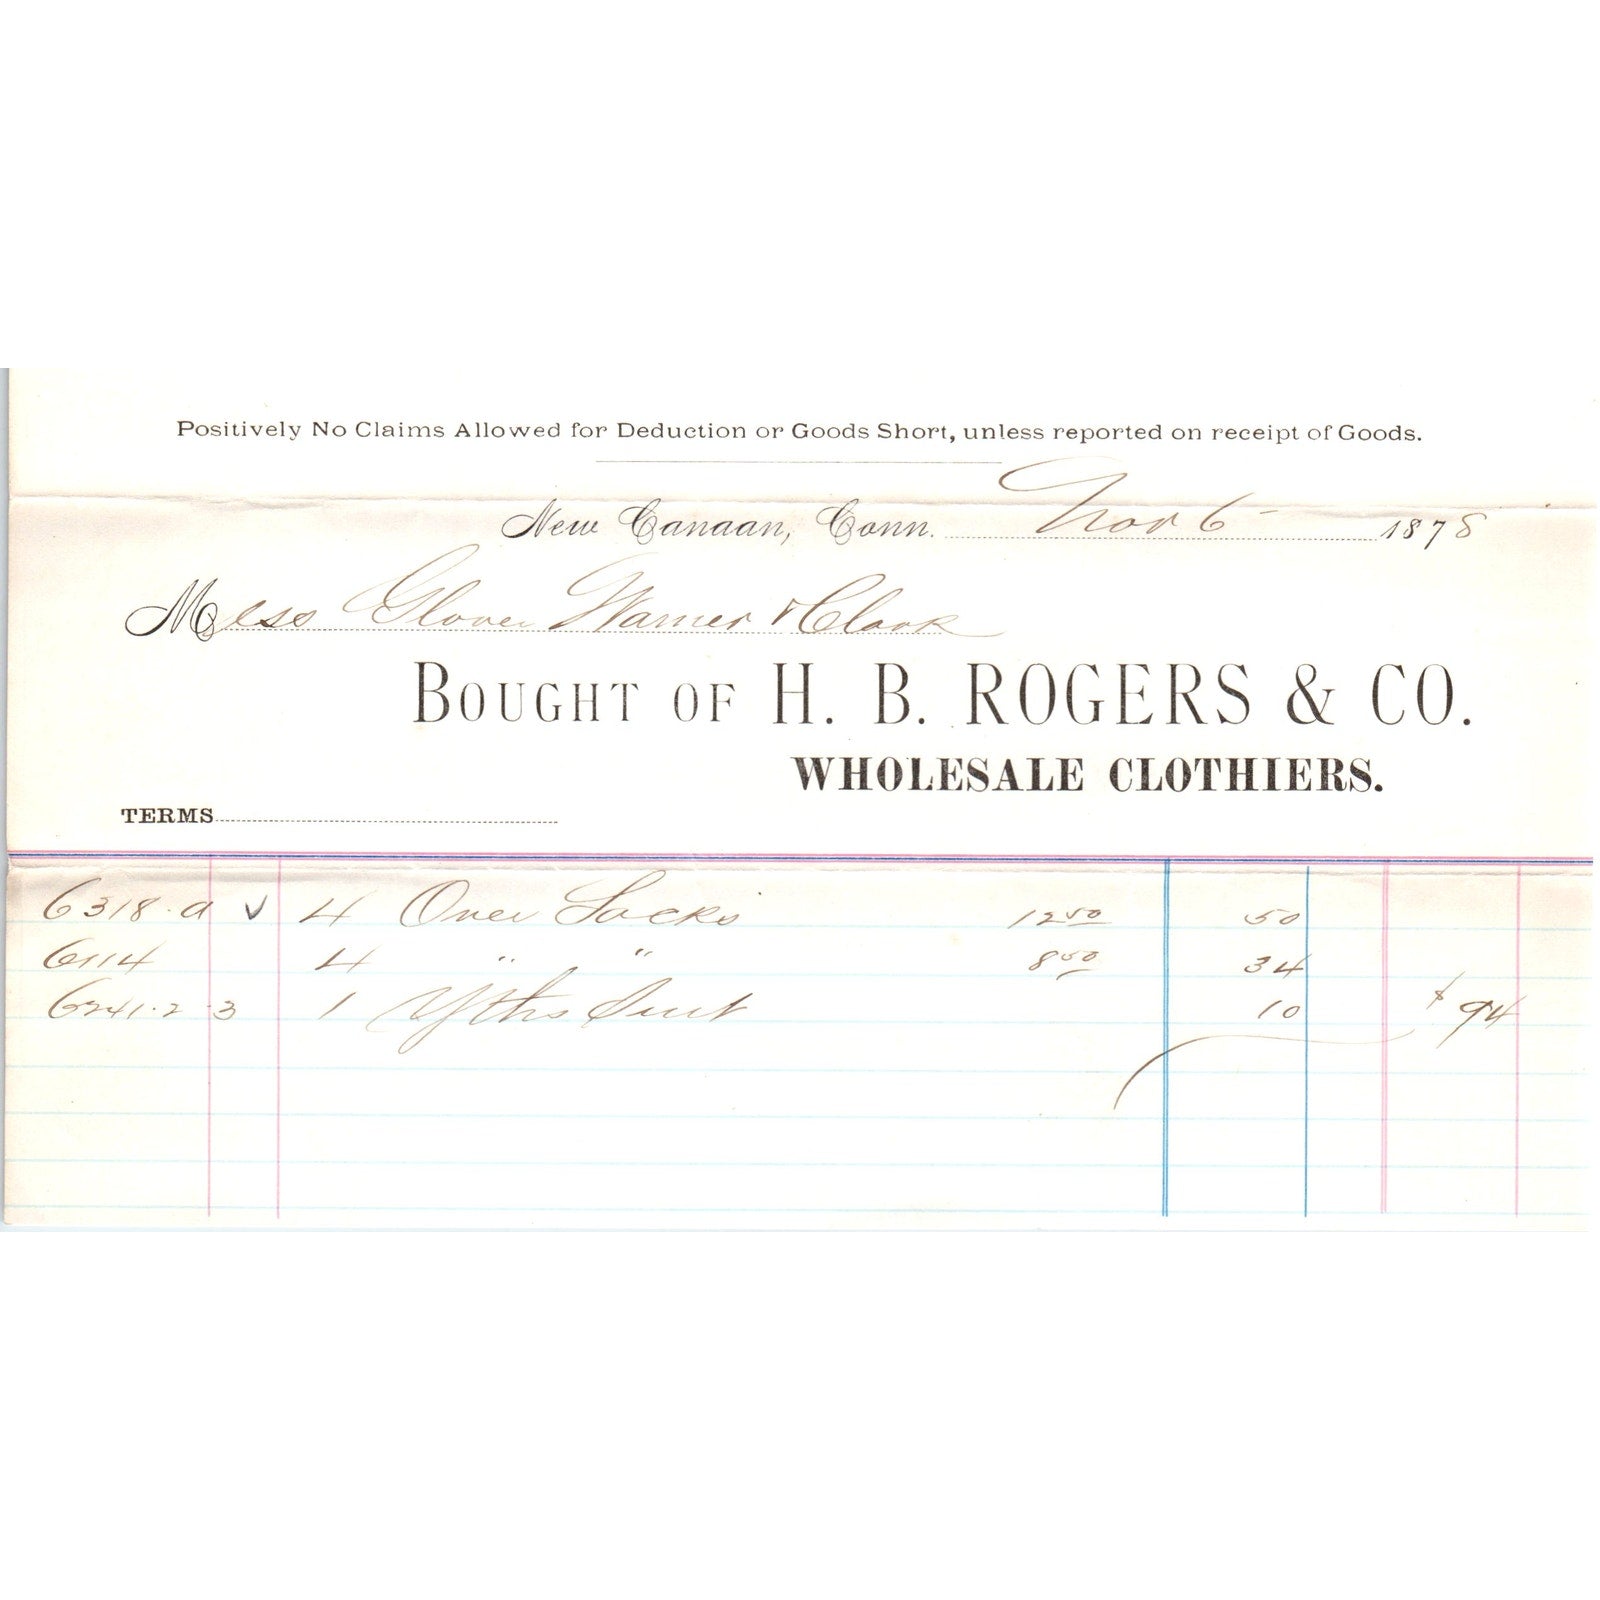 Positively No Claims Allowed for Deduction or Goods Short, unless reported on receipt of Goods.
New Canaan, Conn. Nov 6 - 1878
Mess Glover Warner & Clark
BOUGHT OF H. B. ROGERS & CO.
WHOLESALE CLOTHIERS.
TERMS
6318.a ✓ 4 Over Sacks 12 50 50
6114 4 " " 8 50 34
6241.2 3 1 Yths Suit 10 $ 94